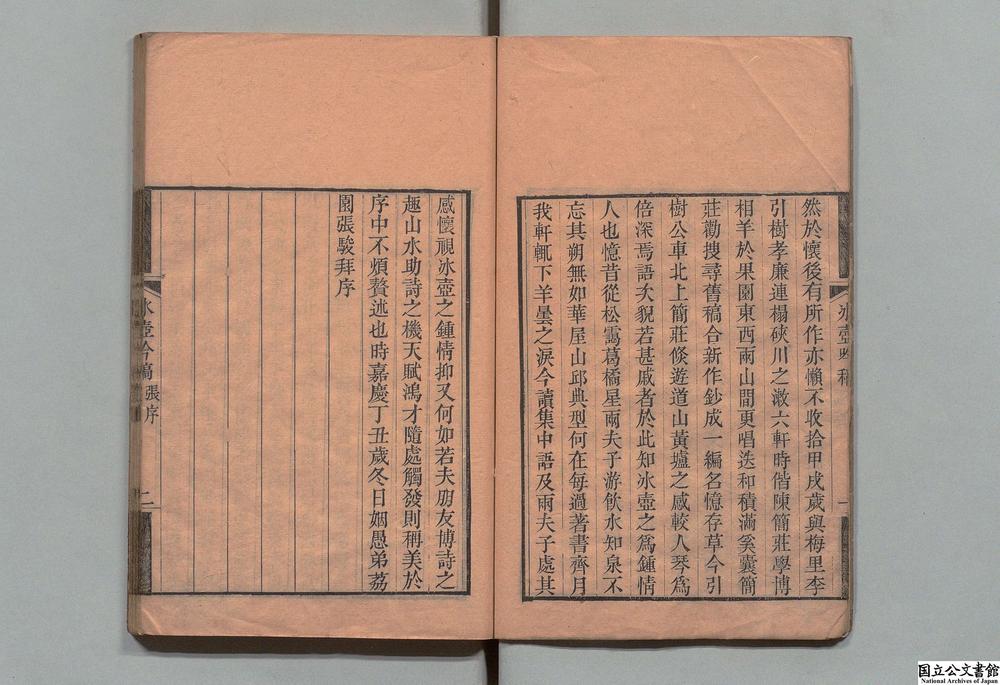 然於懷後有所作亦懶不收拾甲戌歲與梅里李
引樹孝廉連榻硤川之漱六軒時偕陳簡莊學博
相羊於果園東西兩山閒更唱迭和積滿奚囊簡
莊勸搜尋舊稿合新作鈔成一編名憶存草今引
樹公車北上簡莊倐遊道山黃壚之感較人琴為
倍深焉語次貎若甚戚者於此知冰壺之為鍾情
人也憶昔從松靄葛橘星兩夫子游飲水知泉不
忘其朔無如華屋山邱典型何在每過著書齊月
我軒輒下羊曇之淚今讀集中語及兩夫子處其
冰壺吟稿
感懷視冰壺之鍾情抑又何如若夫朋友博詩之
趣山水助詩之機天賦鴻才隨處觸發則稱美於
序中不煩贅述也時嘉慶丁丑歲冬日姻愚弟荔
園張駿拜序
冰壺吟稿
張序
二
国立公文書館
National Archives of Japan